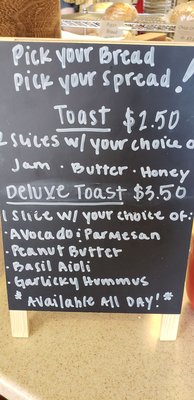 Pick your Bread
Pick your Spread!
Toast $1.50
2 Slices w/ your choice o
Jam · Butter · Honey
Deluxe Toast $3.50
1 Slice w/ your choice of:
· Avocado & Parmesan
· Peanut Butter
· Basil Aioli
· Garlicky Hummus
* Available All Day! *